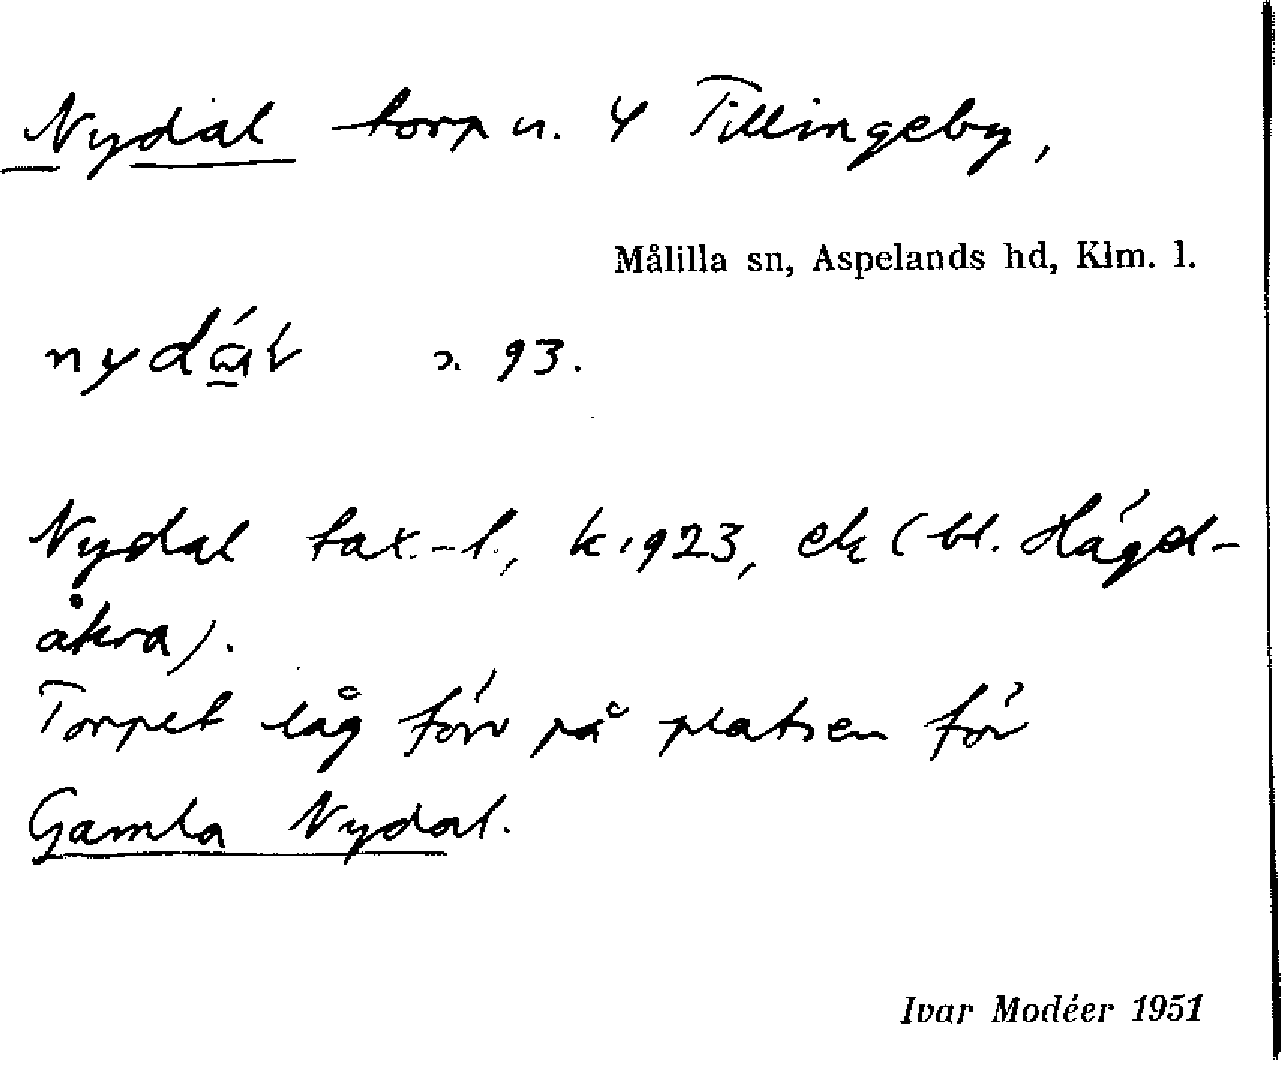 Nydal torp u. 4 Tillingeby,
Målilla sn, Aspelands hd, Klm. l.
93.
Nydal tax.-l., k 1923, ek (bl. Hägd-
åkra).
Torpet låg förr på platsen för
Gamla Nydal.
Ivar Modéer 1951